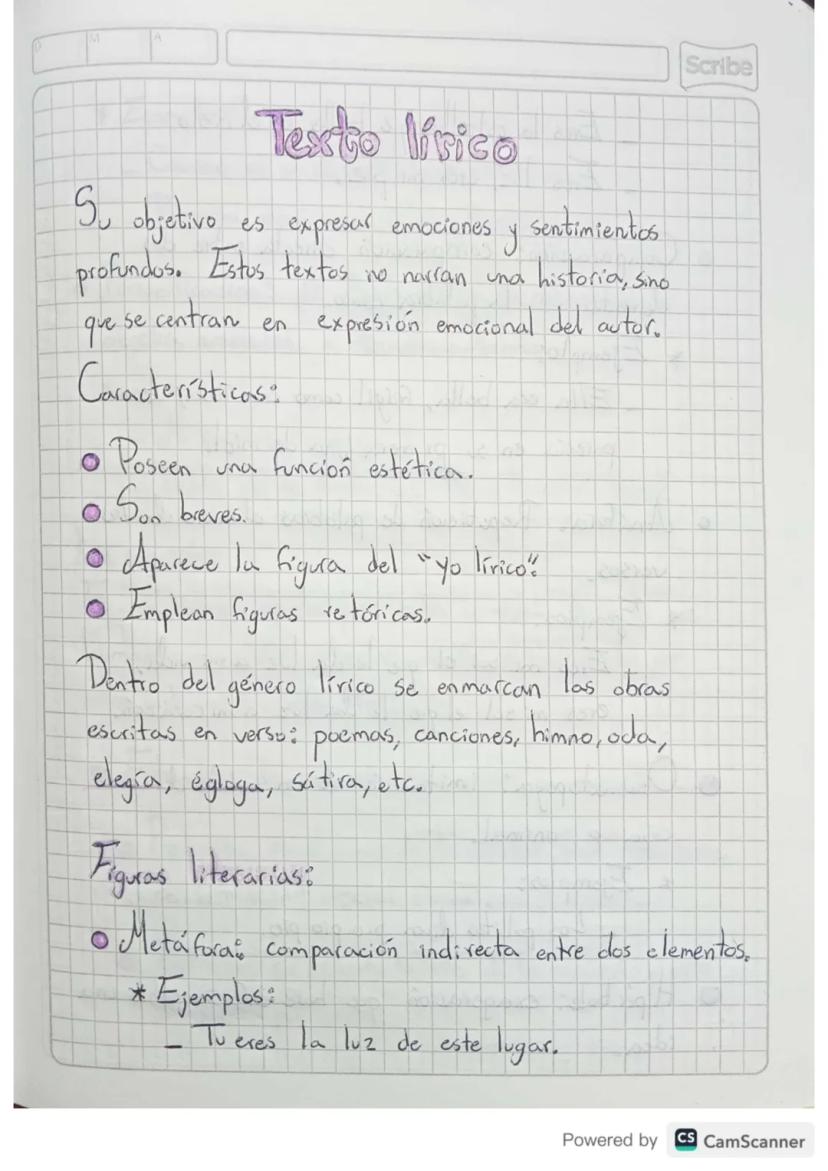 D M A
Scribe
Texto lírico
Su objetivo es expresar emociones y sentimientos
profundos. Estos textos no narran una historia, sino
que se centran en expresión emocional del autor.
Características:
Poseen una función estética.
Son breves.
Aparece la figura del "yo lírico".
Emplean figuras retóricas.
Dentro del género lírico se enmarcan las obras
escritas en verso: poemas, canciones, himno, oda,
elegía, égloga, sátira, etc.
Figuras literarias:
Metáfora: comparación indirecta entre dos elementos.
* Ejemplos:
– Tu eres la luz de este lugar.
Powered by CS CamScanner